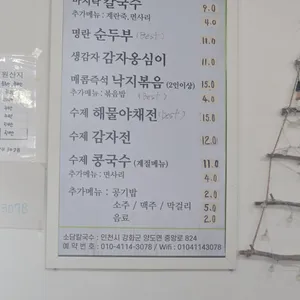 바지락 칼국수 9.0
추가메뉴 : 계란죽, 면사리 4.0
명란 순두부 (Best) 11.0
생감자 감자옹심이 11.0
매콤즉석 낙지볶음 (2인이상) 15.0
추가메뉴 : 볶음밥 4.0
수제 해물야채전 (Best) 15.0
수제 감자전 12.0
수제 콩국수 (계절메뉴) 11.0
추가메뉴 : 면사리 4.0
추가메뉴 : 공기밥 2.0
소주 / 맥주 / 막걸리 5.0
음료 2.0
소담칼국수 : 인천시 강화군 양도면 중앙로 824
예 약 번 호 : 010-4114-3078 / Wifi : 01041143078
원산지